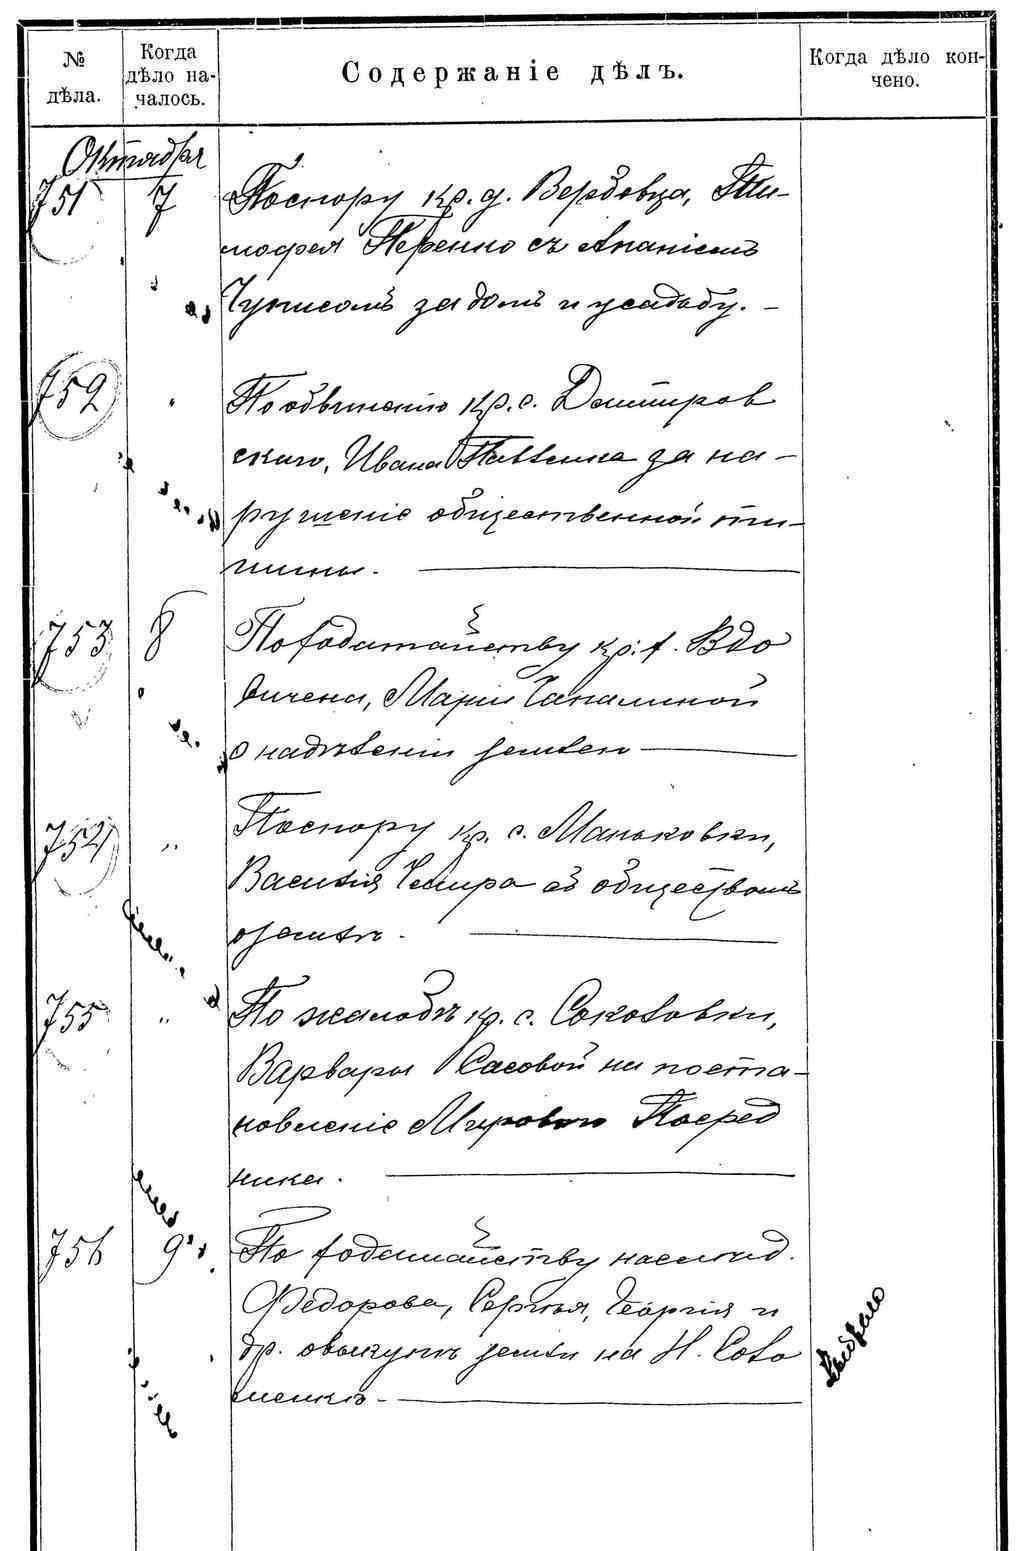 № дѣла.
Когда дѣло на-
чалось.
Содержаніе дѣлъ.
Когда дѣло кон-
чено.
Октября
751 7 По спору кр. д. Вербовца, Ти-
мофея с Ананіемъ
за домъ и усадьбу. -
752 " По обвиненію кр. с. Дмитров
скаго, Ивана за на-
рушеніе общественной ти-
шины.
753 8 По ходатайству кр. х. Вдо
вичена, Маріи
о надѣленіи землею
754 " По спору кр. с. Маньковки,
Василія съ обществомъ
о землѣ.
755 " По жалобѣ кр. с. Соколовки,
Варвары Сасовой на поста-
новленіе Мирового Посред
ника.
756 9 По ходатайству наслѣд.
Федорова, Сергѣя, Георгія и
др. о выкупѣ земли на Н. Соло
менкѣ -